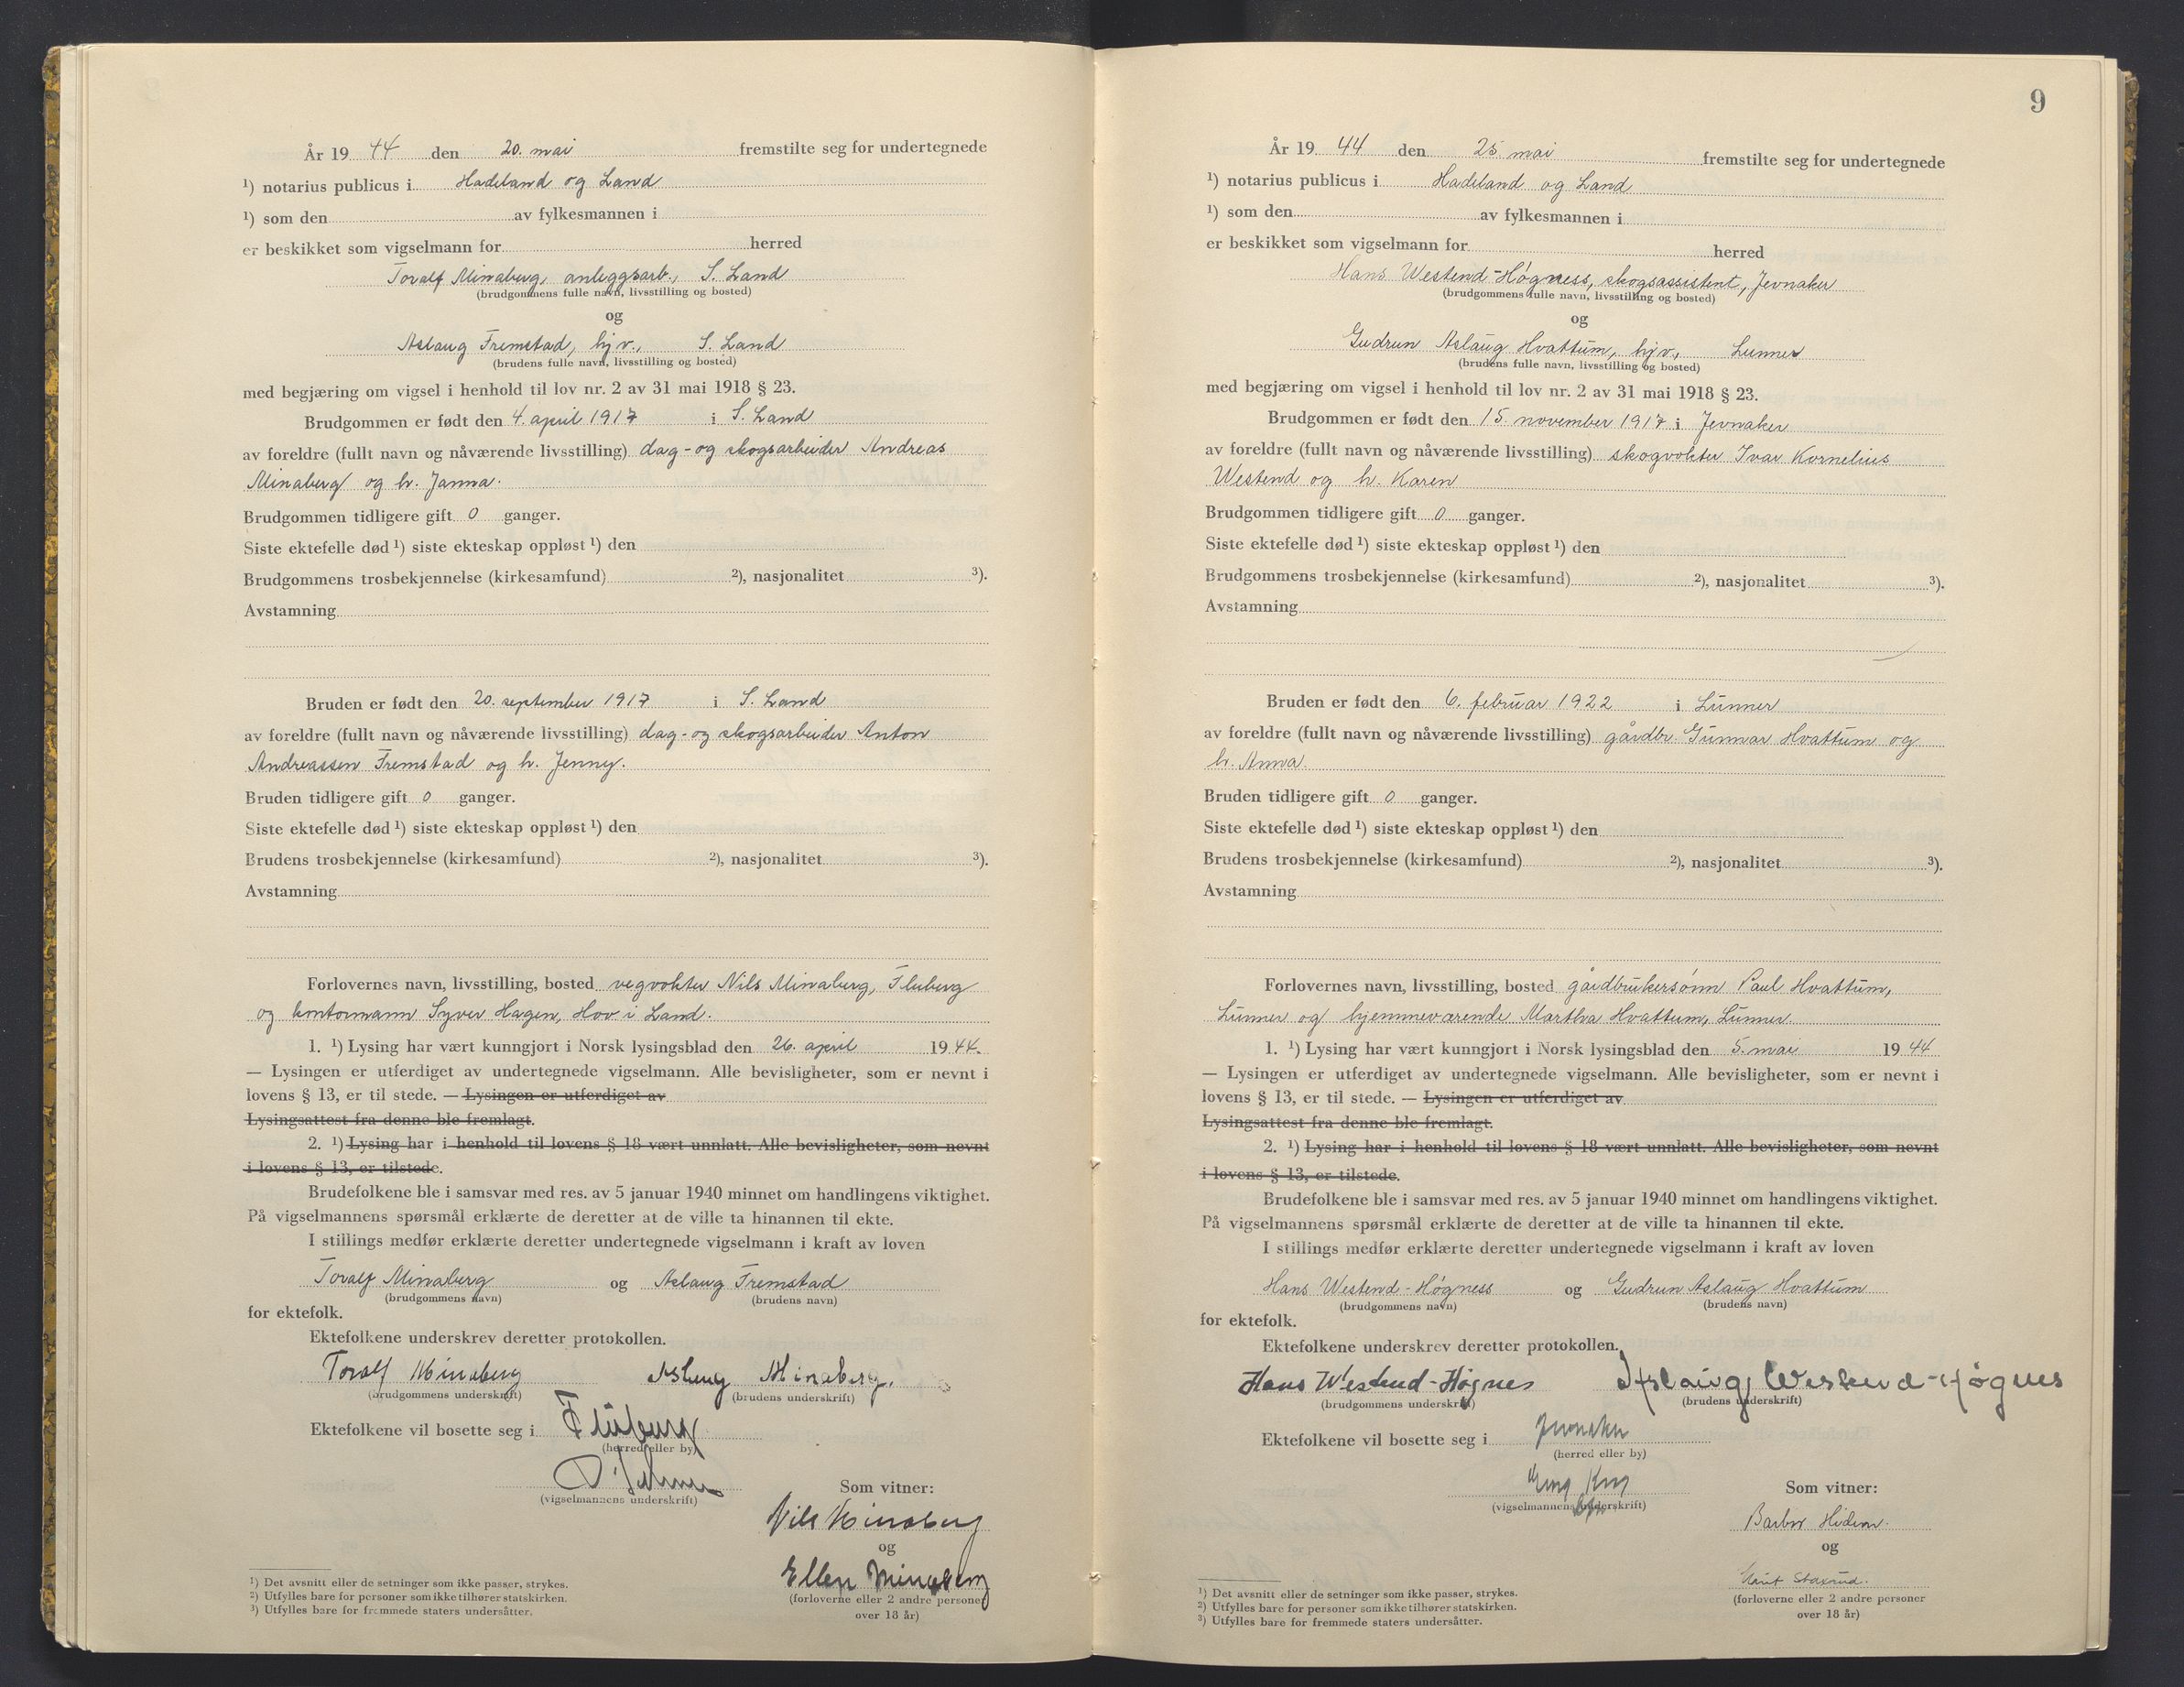 År 19 44 den 20. mai fremstilte seg for undertegnede
¹) notarius publicus i Hadeland og Land
¹) som den av fylkesmannen i
er beskikket som vigselmann for herred
Toralf Minaberg, anleggsarb., S. Land
(brudgommens fulle navn, livsstilling og bosted)
og
Aslaug Fremstad, hjv., S. Land
(brudens fulle navn, livsstilling og bosted)
med begjæring om vigsel i henhold til lov nr. 2 av 31 mai 1918 § 23.
Brudgommen er født den 4. april 1917 i S. Land
av foreldre (fullt navn og nåværende livsstilling) dag- og skogsarbeider Andreas
Minaberg og h. Janna.
Brudgommen tidligere gift 0 ganger.
Siste ektefelle død ¹) siste ekteskap oppløst ¹) den
Brudgommens trosbekjennelse (kirkesamfund) ²), nasjonalitet ³).
Avstamning
Bruden er født den 20. september 1917 i S. Land
av foreldre (fullt navn og nåværende livsstilling) dag- og skogsarbeider Anton
Andreassen Fremstad og h. Jenny.
Bruden tidligere gift 0 ganger.
Siste ektefelle død ¹) siste ekteskap oppløst ¹) den
Brudens trosbekjennelse (kirkesamfund) ²), nasjonalitet ³).
Avstamning
Forlovernes navn, livsstilling, bosted vegvokter Nils Minaberg, Fluberg
og kontormann Syver Hagen, Hov i Land.
1. ¹) Lysing har vært kunngjort i Norsk lysingsblad den 26. april 1944.
— Lysingen er utferdiget av undertegnede vigselmann. Alle bevisligheter, som er nevnt i
lovens § 13, er til stede. — Lysingen er utferdiget av
Lysingsattest fra denne ble fremlagt.
2. ¹) Lysing har i henhold til lovens § 18 vært unnlatt. Alle bevisligheter, som nevnt
i lovens § 13, er tilstede.
Brudefolkene ble i samsvar med res. av 5 januar 1940 minnet om handlingens viktighet.
På vigselmannens spørsmål erklærte de deretter at de ville ta hinannen til ekte.
I stillings medfør erklærte deretter undertegnede vigselmann i kraft av loven
Toralf Minaberg og Aslaug Fremstad
(brudgommens navn) (brudens navn)
for ektefolk.
Ektefolkene underskrev deretter protokollen.
Toralf Minaberg Aslaug Minaberg.
(brudgommens underskrift) (brudens underskrift)
Ektefolkene vil bosette seg i Fluberg
(herred eller by)
Som vitner:
(vigselmannens underskrift)
Nils Minaberg
og
Ellen Minaberg
(forloverne eller 2 andre personer
over 18 år)
¹) Det avsnitt eller de setninger som ikke passer, strykes.
²) Utfylles bare for personer som ikke tilhører statskirken.
³) Utfylles bare for fremmede staters undersåtter.
9
År 19 44 den 25. mai fremstilte seg for undertegnede
¹) notarius publicus i Hadeland og Land
¹) som den av fylkesmannen i
er beskikket som vigselmann for herred
Hans Westend-Høgness, skogsassistent, Jevnaker
(brudgommens fulle navn, livsstilling og bosted)
og
Gudrun Aslaug Hvattum, hjv., Lunner
(brudens fulle navn, livsstilling og bosted)
med begjæring om vigsel i henhold til lov nr. 2 av 31 mai 1918 § 23.
Brudgommen er født den 15. november 1917 i Jevnaker
av foreldre (fullt navn og nåværende livsstilling) skogvokter Ivar Kornelius
Westend og h. Karen
Brudgommen tidligere gift 0 ganger.
Siste ektefelle død ¹) siste ekteskap oppløst ¹) den
Brudgommens trosbekjennelse (kirkesamfund) ²), nasjonalitet ³).
Avstamning
Bruden er født den 6. februar 1922 i Lunner
av foreldre (fullt navn og nåværende livsstilling) gårdbr. Gunnar Hvattum og
h. Anna.
Bruden tidligere gift 0 ganger.
Siste ektefelle død ¹) siste ekteskap oppløst ¹) den
Brudens trosbekjennelse (kirkesamfund) ²), nasjonalitet ³).
Avstamning
Forlovernes navn, livsstilling, bosted gårdbrukersønn Paul Hvattum,
Lunner og hjemmeværende Martha Hvattum, Lunner
1. ¹) Lysing har vært kunngjort i Norsk lysingsblad den 5. mai 19 44
— Lysingen er utferdiget av undertegnede vigselmann. Alle bevisligheter, som er nevnt i
lovens § 13, er til stede. — Lysingen er utferdiget av
Lysingsattest fra denne ble fremlagt.
2. ¹) Lysing har i henhold til lovens § 18 vært unnlatt. Alle bevisligheter, som nevnt
i lovens § 13, er tilstede.
Brudefolkene ble i samsvar med res. av 5 januar 1940 minnet om handlingens viktighet.
På vigselmannens spørsmål erklærte de deretter at de ville ta hinannen til ekte.
I stillings medfør erklærte deretter undertegnede vigselmann i kraft av loven
Hans Westend-Høgness og Gudrun Aslaug Hvattum
(brudgommens navn) (brudens navn)
for ektefolk.
Ektefolkene underskrev deretter protokollen.
Hans Westend-Høgnes Aslaug Westend-Høgnes
(brudgommens underskrift) (brudens underskrift)
Ektefolkene vil bosette seg i Jevnaker
(herred eller by)
Som vitner:
(vigselmannens underskrift)
og
Marit Staxrud.
(forloverne eller 2 andre personer
over 18 år)
¹) Det avsnitt eller de setninger som ikke passer, strykes.
²) Utfylles bare for personer som ikke tilhører statskirken.
³) Utfylles bare for fremmede staters undersåtter.